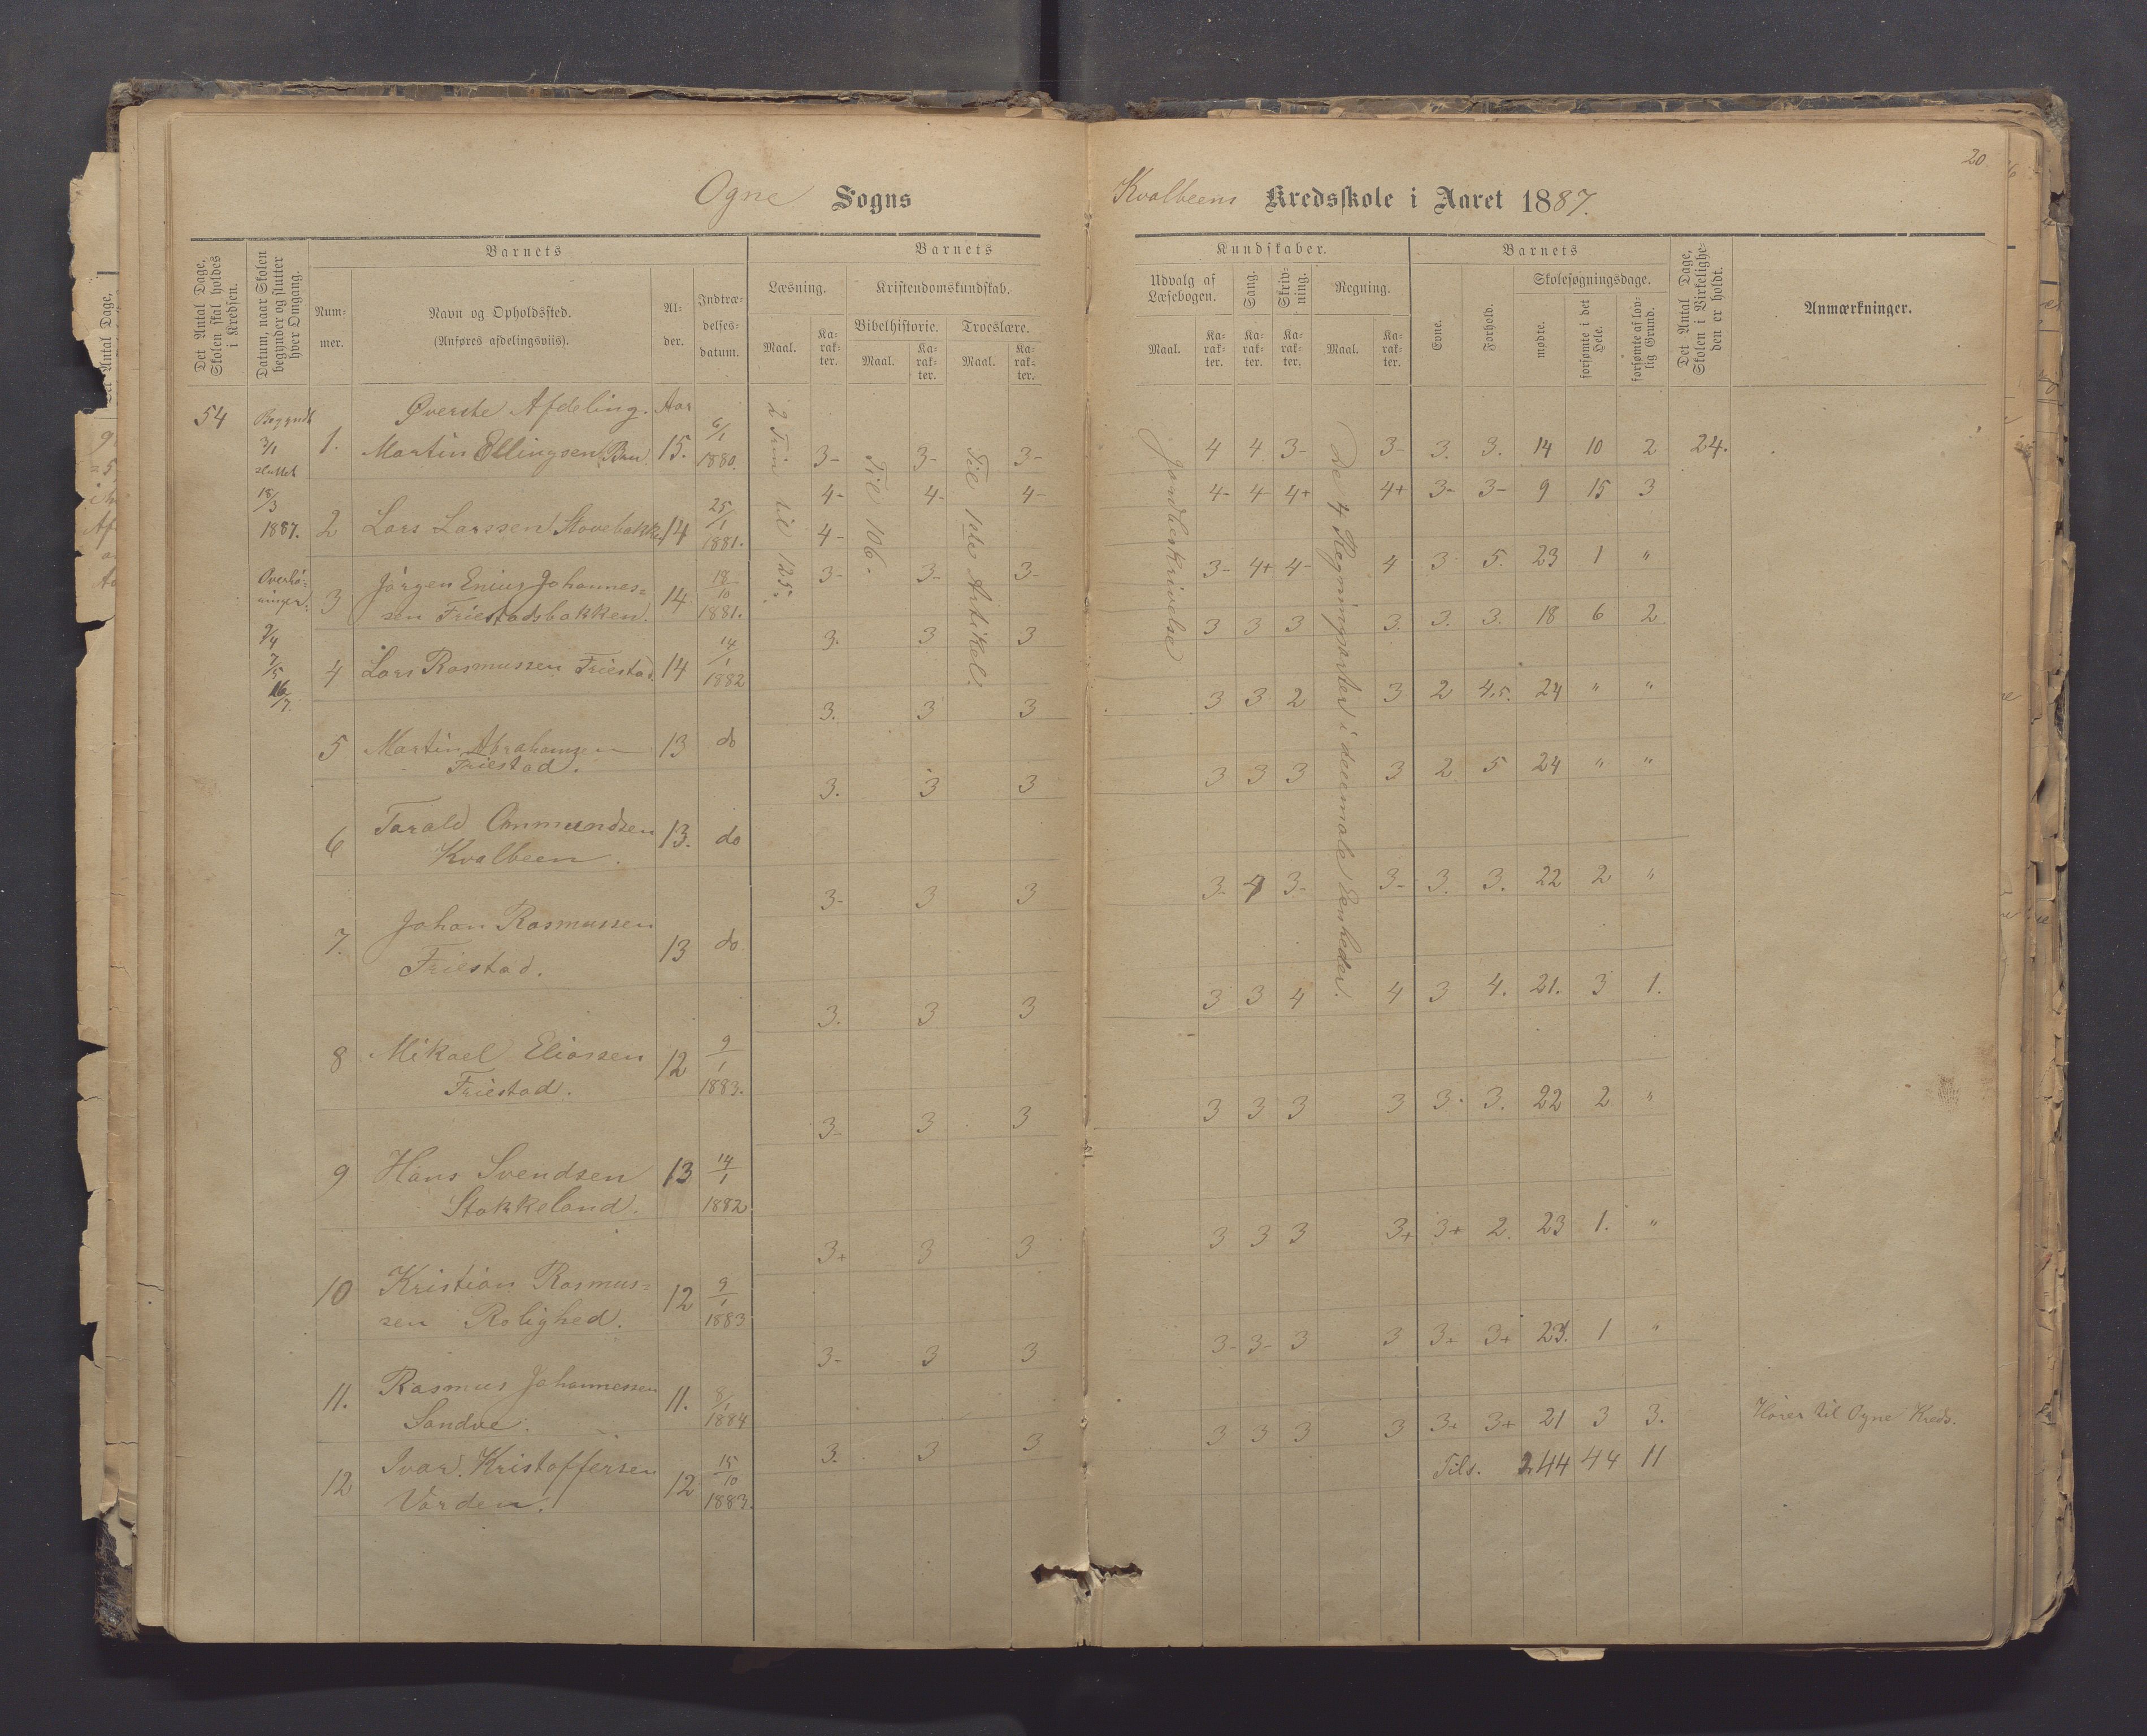 20
Ogne Sogns
Kvalbeens Kredsskole i Aaret 1887.
Det Antal Dage, Skolen skal holdes i Kredsen.
Datum, naar Skolen begynder og slutter hver Omgang.
Barnets
Num-
mer.
Navn og Opholdssted.
(Anføres afdelingsviis).
Al-
der.
Indtræ-
delses-
datum.
Barnets
Læsning.
Kristendomskundskab.
Bibelhistorie. Troeslære.
Maal. Ka-rak-ter. Maal. Ka-rak-ter. Maal. Ka-rak-ter.
Kundskaber.
Udvalg af Læsebogen. Sang. Skriv-ning. Regning.
Maal. Ka-rak-ter. Ka-rak-ter. Ka-rak-ter. Maal. Ka-rak-ter.
Barnets
Evne. Forhold. Skolesøgningsdage.
mødte. forsømte i det Hele. forsømte af lov-lig Grund.
Det Antal Dage, Skolen i Virkelighe-den er holdt.
Anmærkninger.
54
Begyndt
3/1
sluttet
18/3
1887.
Overhø-
ringer.
9/4
7/5
16/7.
2 Trin til 125.
Til 106.
Til 1ste Artikel.
Jordbeskrivelse
De 4 Regningsarter i deeimale Eenheder.
Øverste Afdeling. Aar
1. Martin Ellingsen Bru 15. 6/1 1880. 3- 3- 3- 4 4 3- 3- 3. 3. 14 10 2 24.
2 Lars Larssen Stovebakke 14 25/1 1881. 4- 4- 4- 4- 4- 4+ 4+ 3- 3- 9 15 3
4-
3 Jörgen Enius Johannes-
sen Friestadsbakken. 14 18/10 1881. 3- 3- 3- 3- 4+ 4- 4 3 5. 23 1 "
4 Lars Rasmussen Friestad. 14 14/1 1882 3. 3 3 3 3 3 3. 3. 3. 18 6 2
5 Martin Abrahamsen
Friestad. 13 do 3. 3 3 3 3 2 3 2 4,5. 24 " "
6 Tarald Ommundsen
Kvalbeen. 13. do 3. 3 3 3 3 3 3 2 5 24 " "
7. Johan Rasmussen
Friestad. 13 do 3- 3 3 3- 4 3- 3- 3. 3. 22 2 "
8 Mikael Eliassen
Friestad. 12 9/1 1883. 3. 3 3 3 3 4 4 3 4. 21. 3 1.
9 Hans Svendsen
Stokkeland. 13 14/1 1882 3- 3 3 3 3 3 3 3. 3. 22 2 "
10 Kristian Rasmus-
sen Rolighed. 12 9/1 1883 3+ 3 3 3 3 3 3+ 3+ 2. 23 1. "
11. Rasmus Johannessen
Sandve. 11. 8/1 1884 3- 3 3 3- 3- 3 3 3+ 3+ 23. 1 "
12 Ivar Kristoffersen
Varden. 12 15/10 1883. 3. 3 3 3 3 3 3 3+ 3+ 21 3 3. Hører til Ogne Kreds.
Tils. 244 44 11